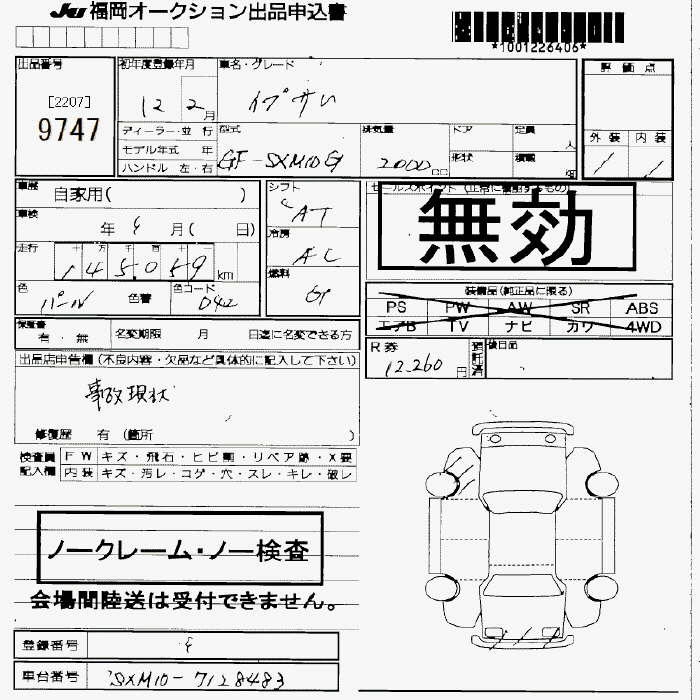 JU 福岡オークション出品申込書
*1001226406*
出品番号
[2207]
9747
初年度登録年月
12 2月
車名・グレード
イプサム
評価点
外装 内装
ディーラー・並行
モデル年式 年
ハンドル 左・右
型式
GF-SXM10G
排気量
2000cc
ドア
形状
定員 人
積載 kg
車歴
自家用( )
車検
年 月( 日)
走行
十 万 千 百 十
145,059 km
色
パール
色替
色コード
042
シフト
AT
冷房
AC
燃料
G
セールスポイント (正常に作動するもの)
無効
装備品(純正品に限る)
PS PW AW SR ABS
エアB TV ナビ カワ 4WD
保証書
有・無
名変期限 月 日迄に名変できる方
R券
12,260円
預託済
後日品
出品店申告欄 (不良内容・欠品など具体的に記入して下さい)
事故現状
修復歴 有 (箇所 )
検査員記入欄
FW キズ・飛石・ヒビ割・リペア跡・X要
内装 キズ・汚レ・コゲ・穴・スレ・キレ・破レ
ノークレーム・ノー検査
会場間陸送は受付できません。
登録番号
車台番号 SXM10-7128483